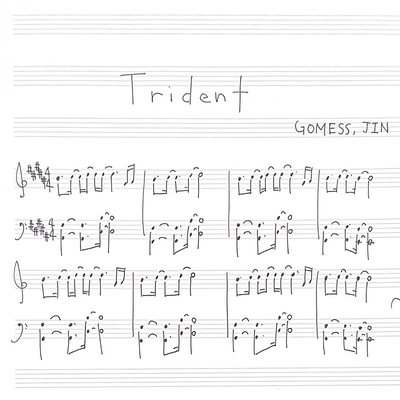 Trident
GOMESS, JIN